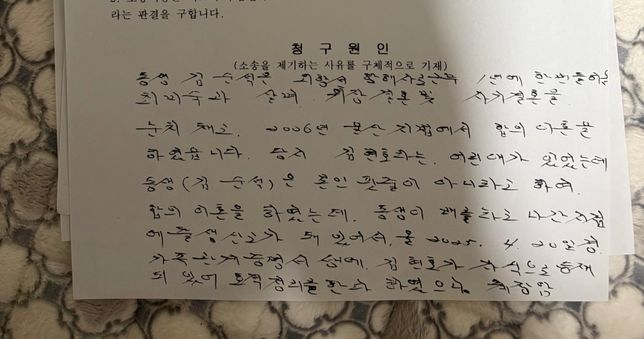 라는 판결을 구합니다.
청 구 원 인
(소송을 제기하는 사유를 구체적으로 기재)
동생 김 순석은
위장결혼 및 사기결혼을
눈치 채고. 2006년 논산 지점에서 합의 이혼을
하였습니다. 당시 김현호라는. 어린애가 있었는데
동생(김 순석)은 본인 핏줄이 아니라고 하여.
합의 이혼을 하였는데. 동생이 배를타고 나간시점
에 출생신고가 돼 있어서. 올 2025. 4. 20일경
가족관계증명서 상에. 김현호가 자식으로 등재
되 있어 호적정리를한다 하였으나. 췌장암